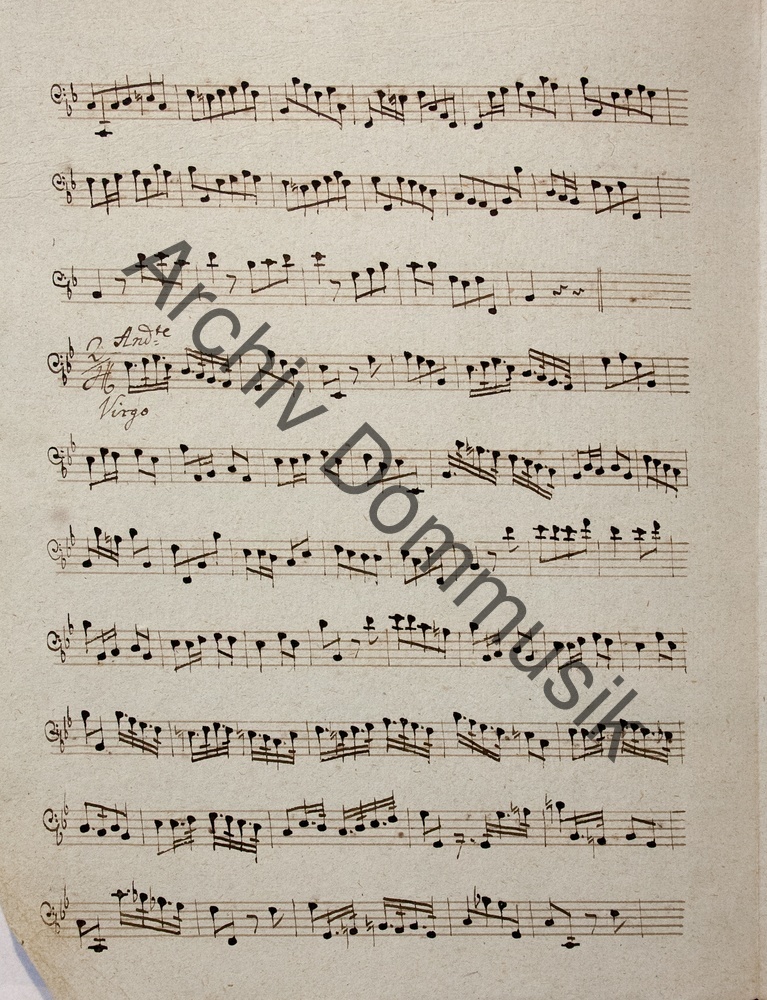 2 And:te
Virgo
Archiv Dommusik